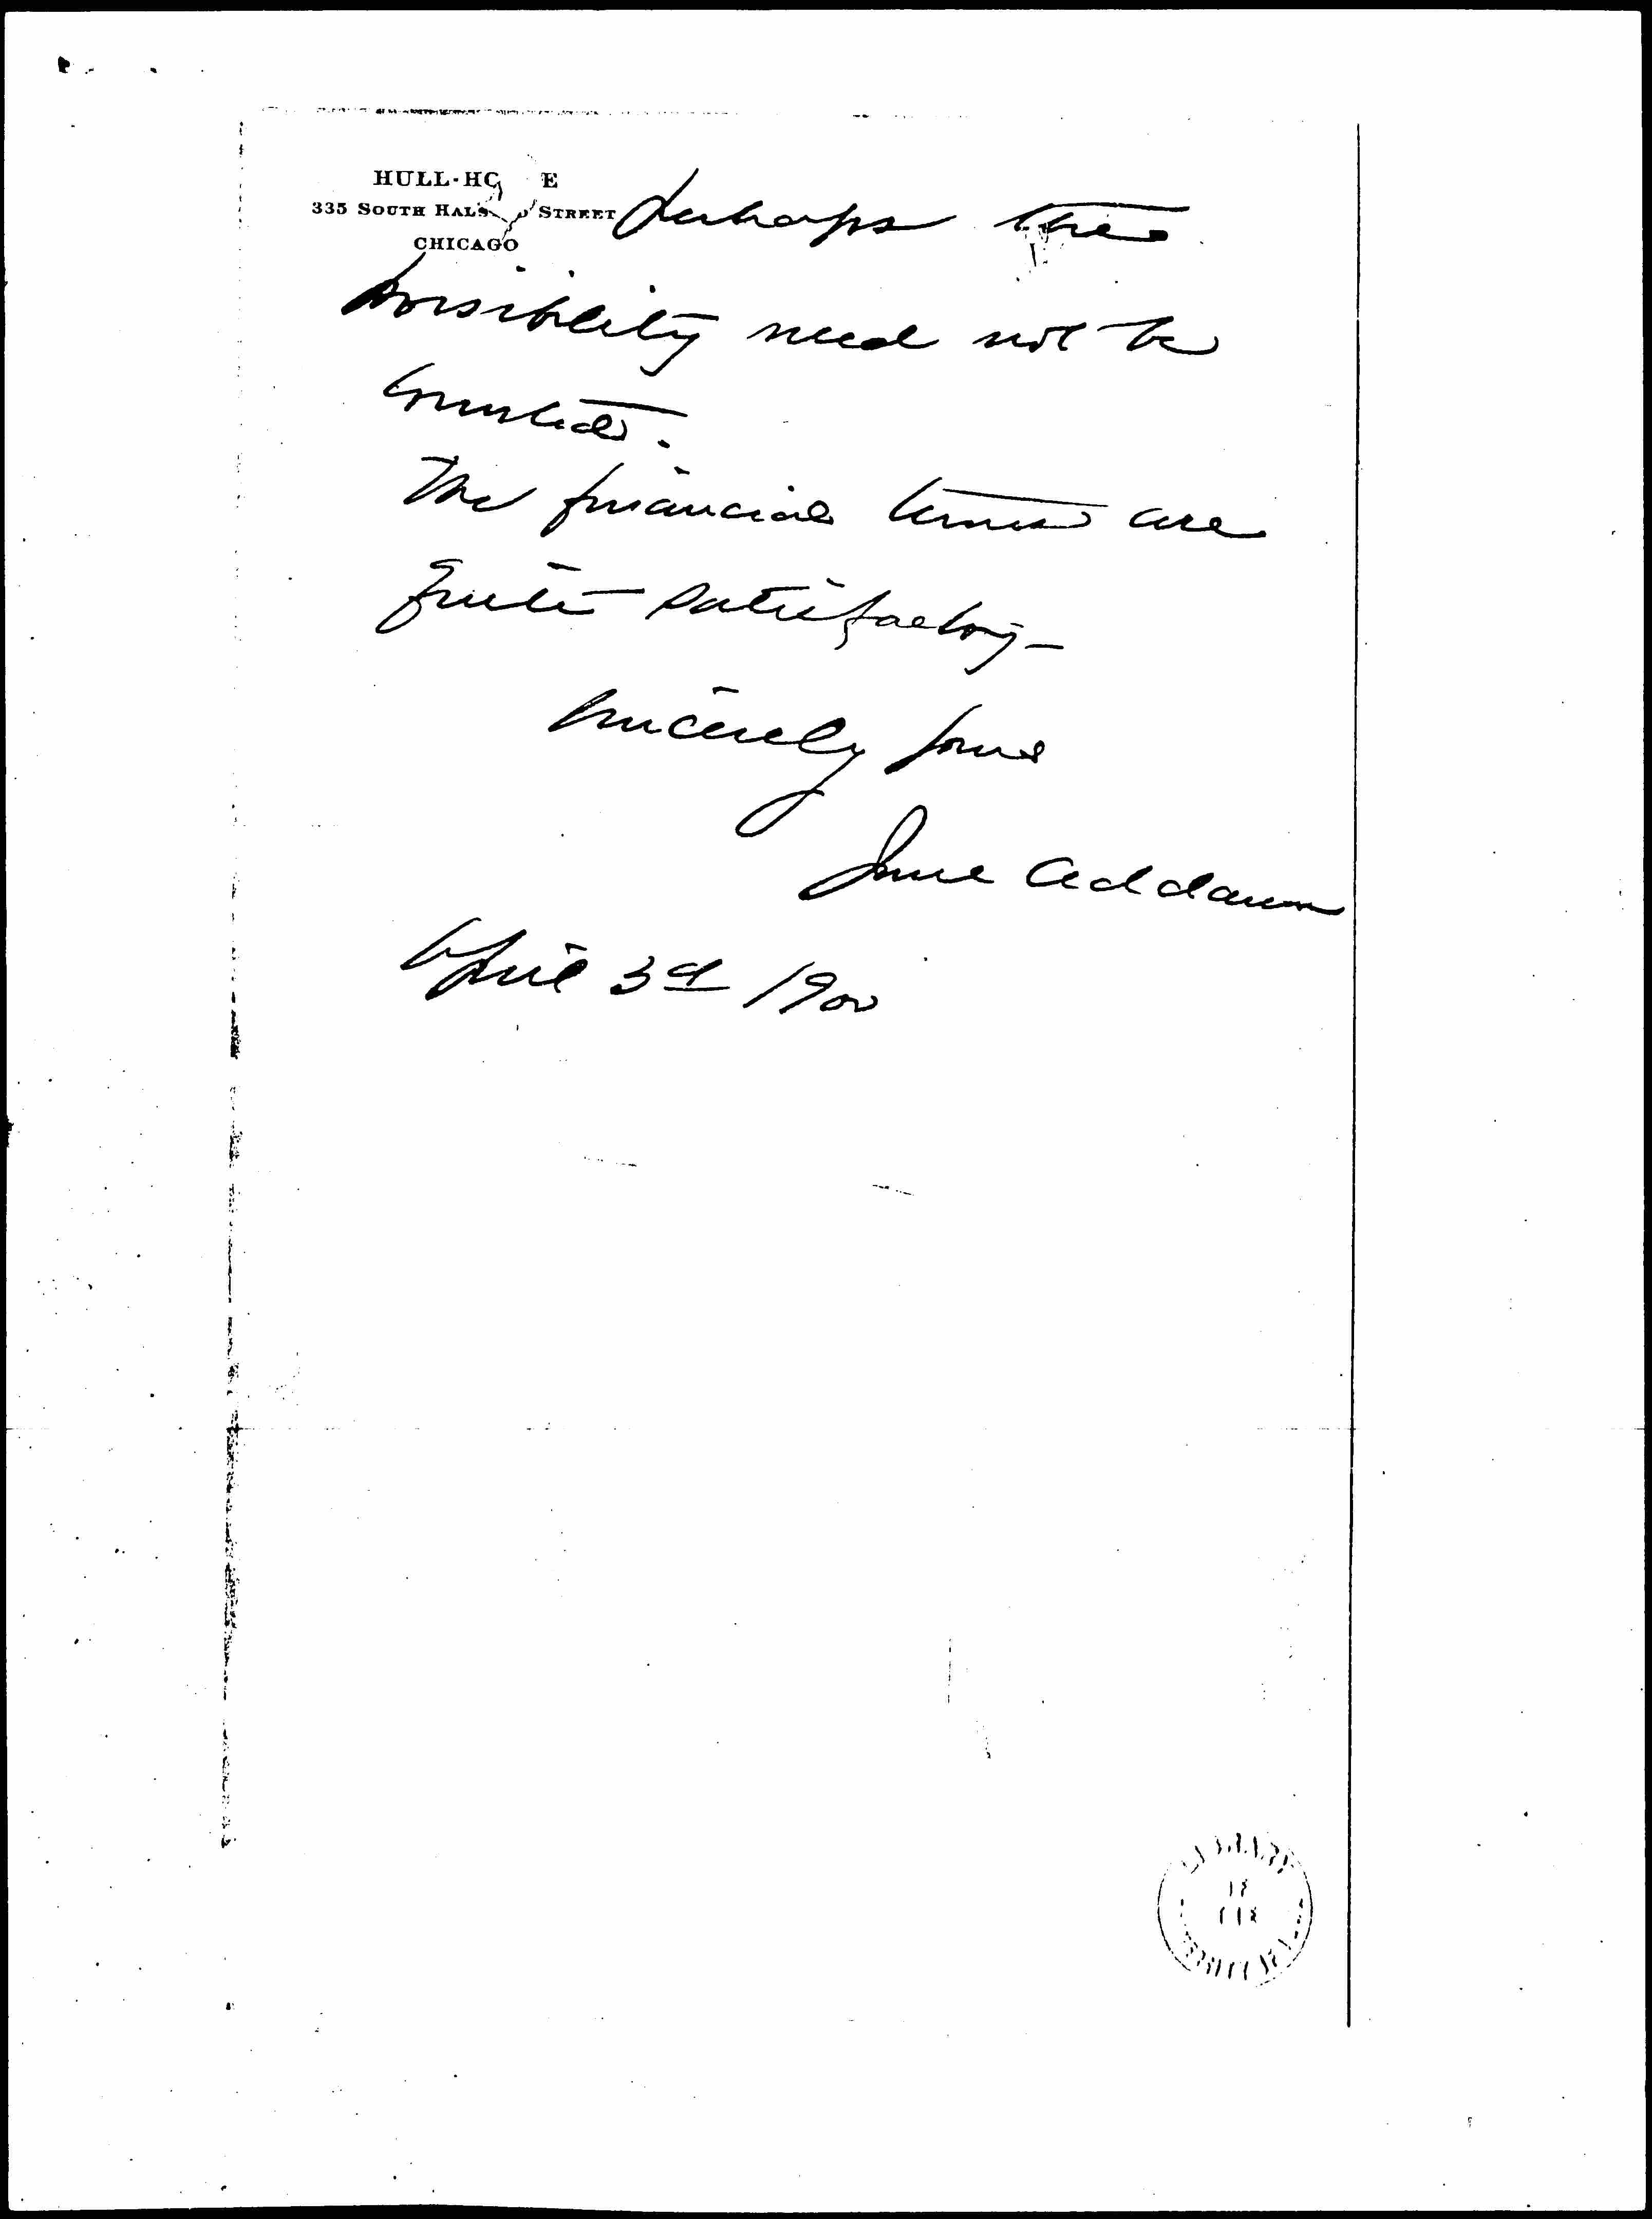 HULL-HO E
335 SOUTH HALS D STREET
CHICAGO
Perhaps this
possibility need not be
counted.
The financial terms are
quite satisfactory –
Sincerely yours
Jane Addams
April 3d 1900
LIBRARY